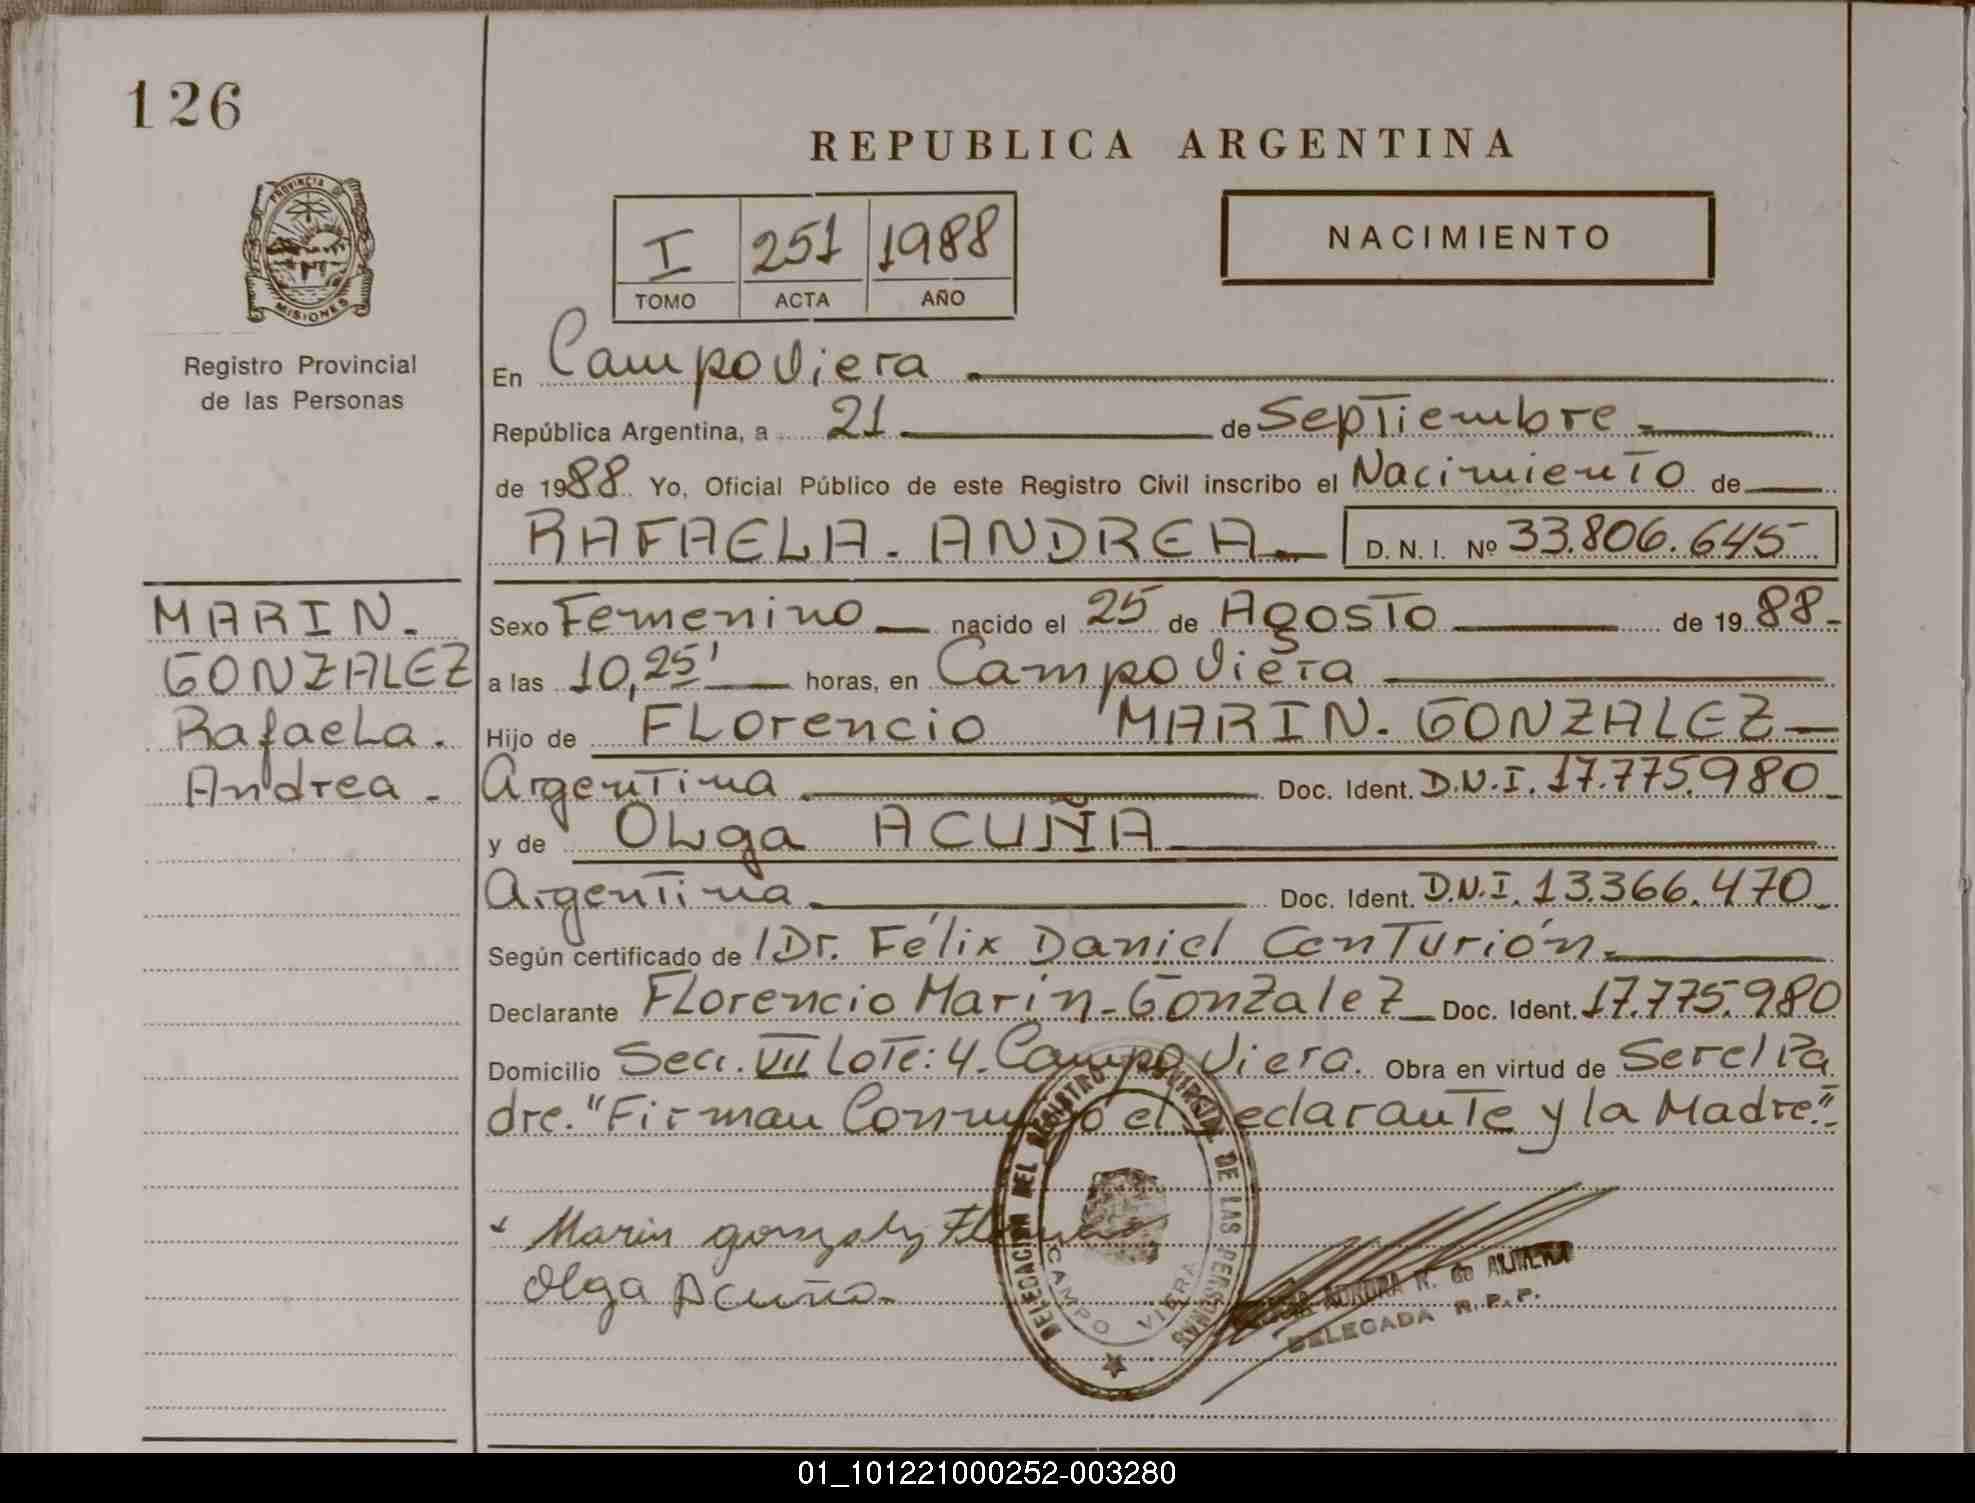 126
REPUBLICA ARGENTINA
PROVINCIA DE
MISIONES
Registro Provincial
de las Personas
I 251 1988
TOMO ACTA AÑO
NACIMIENTO
En Campo Viera
República Argentina, a 21 de Septiembre
de 1988 Yo, Oficial Público de este Registro Civil inscribo el Nacimiento de
RAFAELA. ANDREA D. N. I. Nº 33.806.645
MARIN.
GONZALEZ
Rafaela.
Andrea.
Sexo Femenino nacido el 25 de Agosto de 1988.
a las 10,25' horas, en Campo Viera
Hijo de Florencio MARIN. GONZALEZ
Argentina Doc. Ident. D.N.I. 17.775.980
y de Olga ACUÑA
Argentina Doc. Ident. D.N.I. 13.366.470
Según certificado de Dr. Félix Daniel Centurión.
Declarante Florencio Marin-Gonzalez Doc. Ident. 17.775.980
Domicilio Secc. VII Lote: 4. Campo Viera. Obra en virtud de Ser el Pa
dre. "Firman Conmigo el Declarante y la Madre".
DELEGACION DEL REGISTRO PROVINCIAL DE LAS PERSONAS
CAMPO VIERA
Marin
Olga Acuña.
AURORA R. de
DELEGADA R. P. P.
01_101221000252-003280